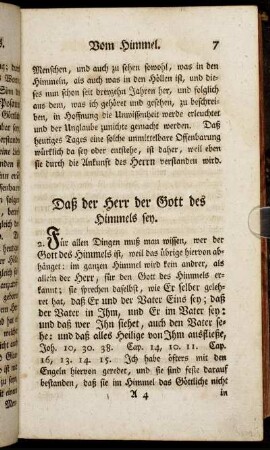 Vom Himmel. 7
Menschen, und auch zu sehen sowohl, was in den
Himmeln, als auch was in den Höllen ist, und die-
ses nun schon seit dreyzehn Jahren her, und folglich
aus dem, was ich gehöret und gesehen, zu beschrei-
ben, in Hoffnung die Unwissenheit werde erleuchtet
und der Unglaube zunichte gemacht werden. Daß
heutiges Tages eine solche unmittelbare Offenbarung
würklich da sey oder entstehe, ist daher, weil eben
sie durch die Ankunft des Herrn verstanden wird.
Daß der Herr der Gott des
Himmels sey.
2. Für allen Dingen muß man wissen, wer der
Gott des Himmels ist, weil das übrige hiervon ab-
hänget: im ganzen Himmel wird kein andrer, als
allein der Herr, für den Gott des Himmels er-
kannt; sie sprechen daselbst, wie Er selber geleh-
ret hat, daß Er und der Vater Eins sey; daß
der Vater in Ihm, und Er im Vater sey:
und daß wer Ihn siehet, auch den Vater se-
he: und daß alles Heilige von Ihm ausfließe,
Joh. 10, 30. 38. Cap. 14, 10. 11. Cap.
16, 13. 14. 15. Ich habe öfters mit den
Engeln hiervon geredet, und sie sind feste darauf
bestanden, daß sie im Himmel das Göttliche nicht
A 4 in